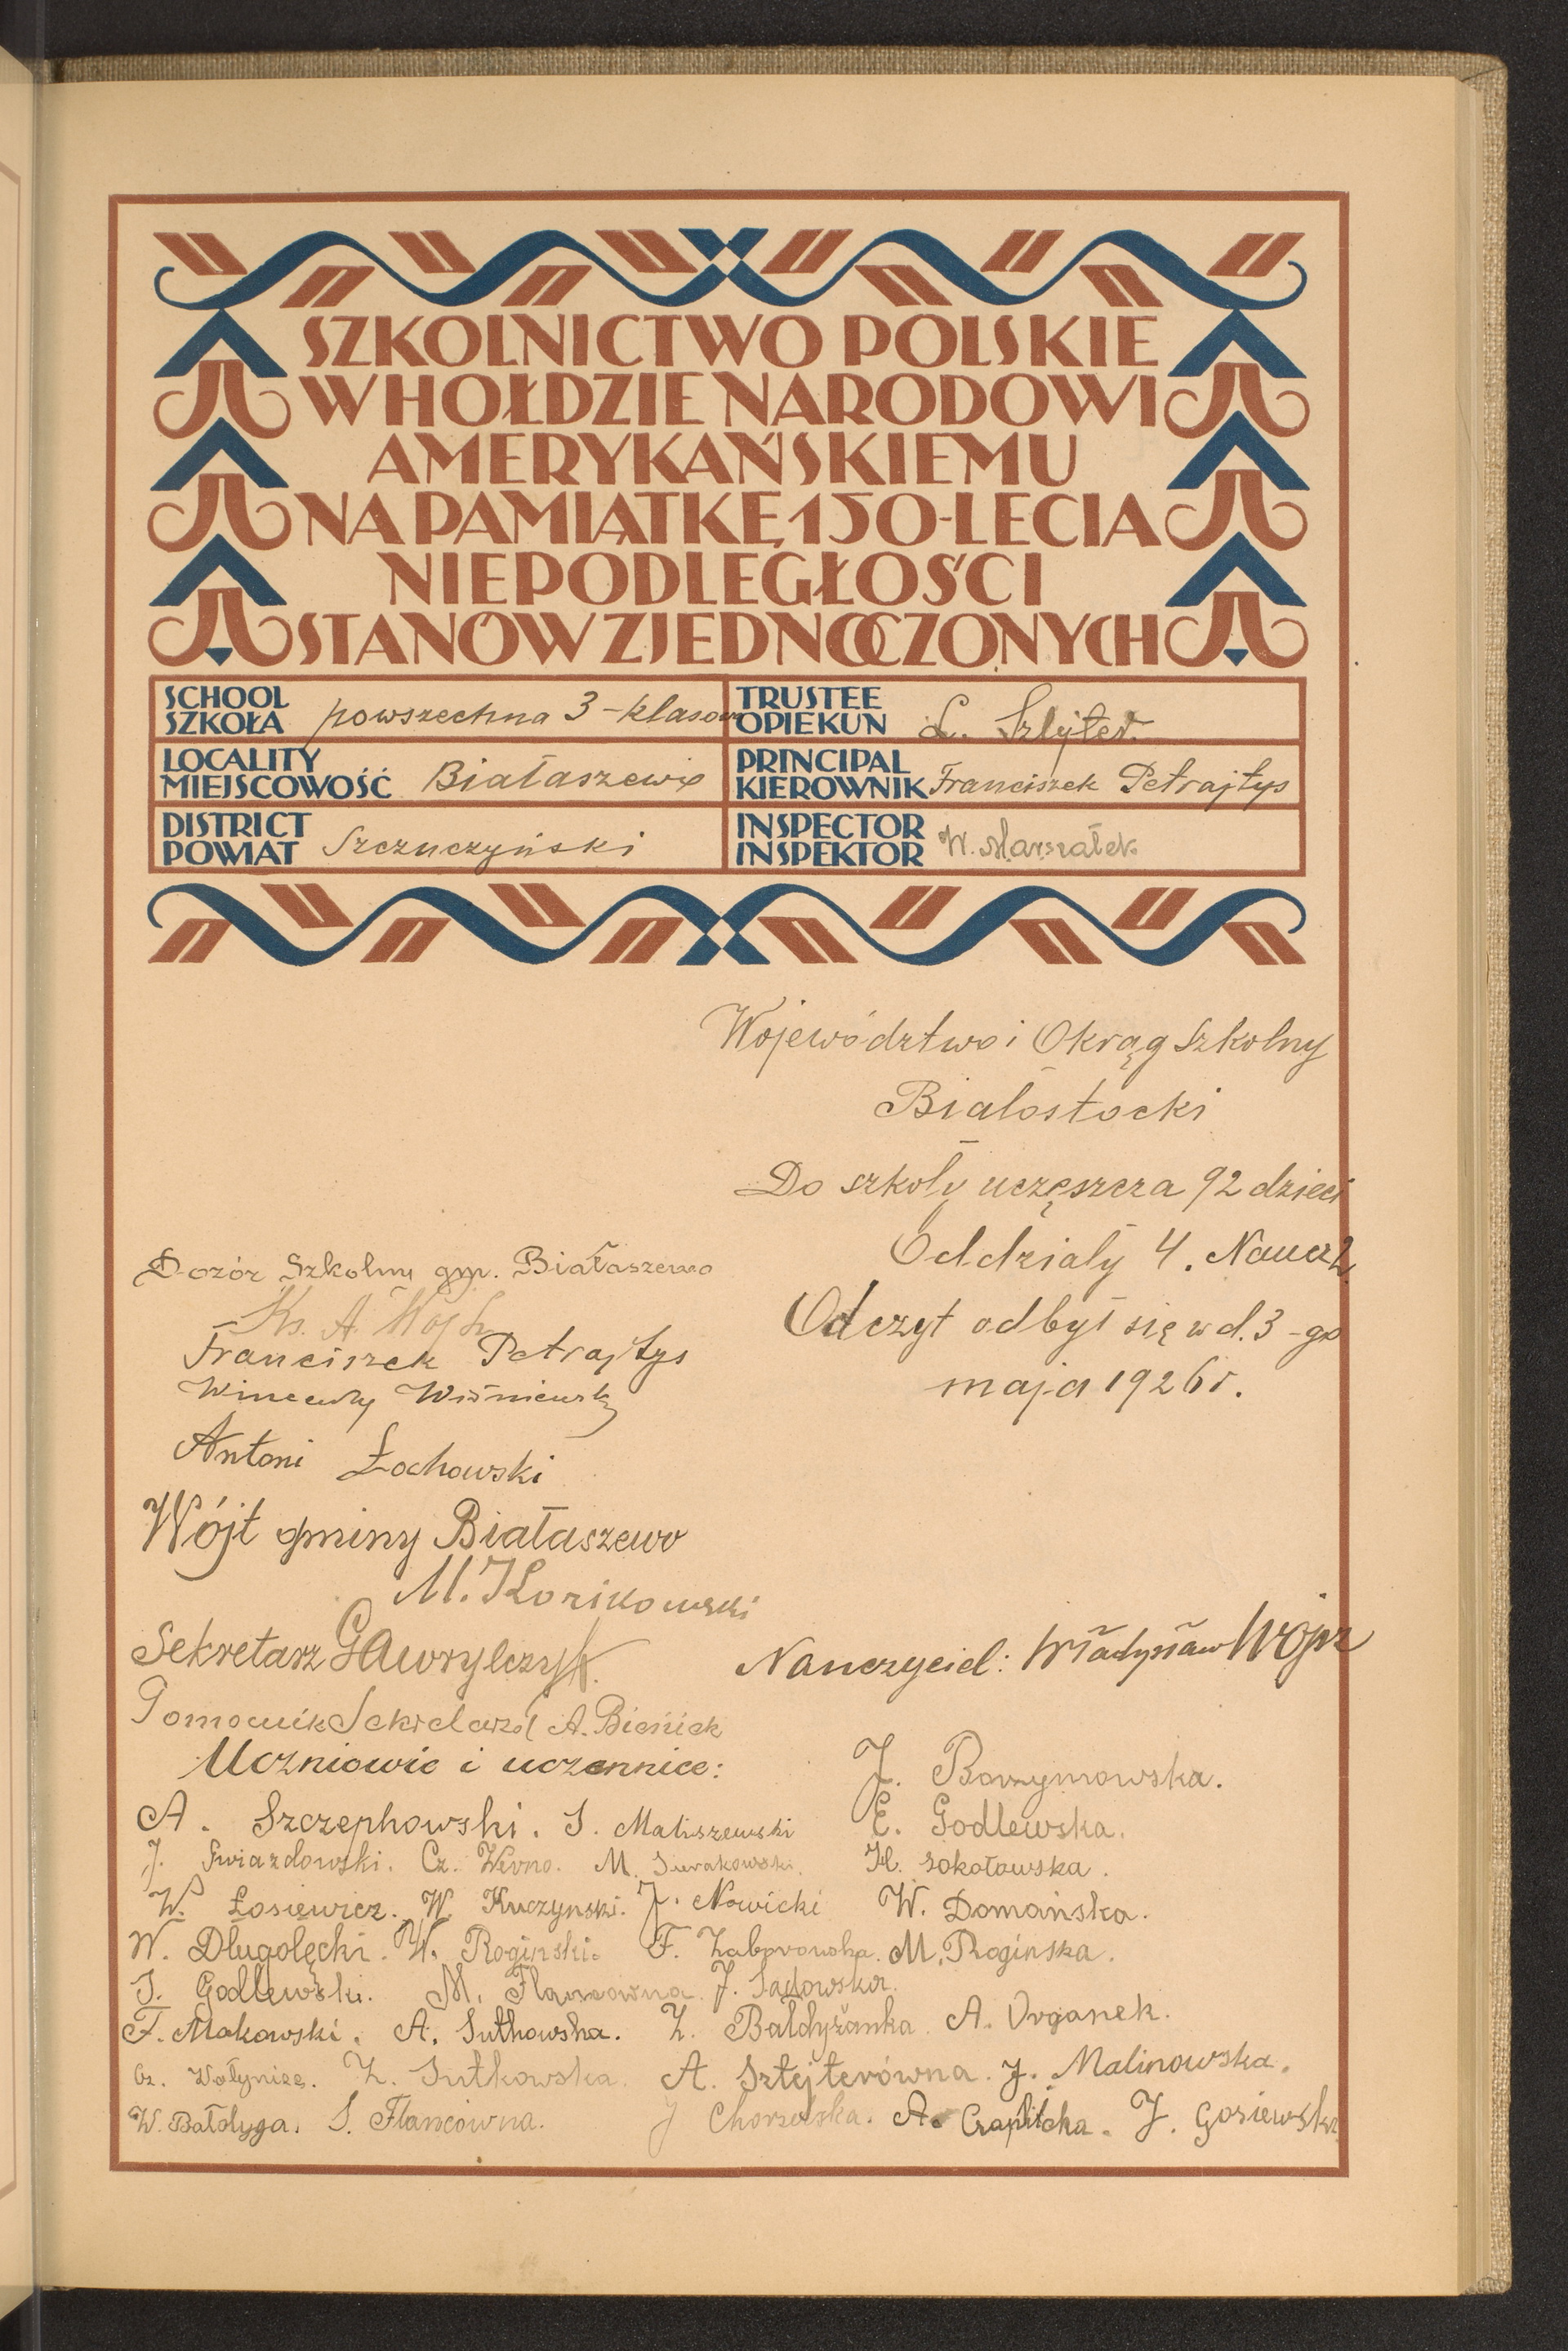 SZKOLNICTWO POLSKIE
W HOŁDZIE NARODOWI
AMERYKAŃSKIEMU
NA PAMIĄTKĘ 150-LECIA
NIEPODLEGŁOŚCI
STANÓW ZJEDNOCZONYCH
SCHOOL
SZKOŁA powszechna 3-klasow
TRUSTEE
OPIEKUN L.
LOCALITY
MIEJSCOWOŚĆ Białaszewo
PRINCIPAL
KIEROWNIK Franciszek Petrajtys
DISTRICT
POWIAT Szczuczyński
INSPECTOR
INSPEKTOR W. Marszałek
Województwo i Okrąg Szkolny
Białostocki
Do szkoły uczęszcza 92 dzieci
Oddziały 4. Naucz 2
Odczyt odbył się w d. 3-go
maja 1926 r.
Dozór Szkolny gm. Białaszewo
Ks. A.
Franciszek Petrajtys
Wincenty Wiśniewski
Antoni Łochowski
Wójt gminy Białaszewo
M.
Sekretarz Gawrylczyk
Pomocnik Sekretarza A. Bieniek
Nauczyciel: Władysław
Uczniowie i uczennice:
A. Szczephowski. S. Maliszewski
J. Gwiazdowski. Cz. M. Sierakowski.
W. Łosiewicz. W. Kuczynski. J. Nowicki
W. Długołęcki. W. Roginski. F. Zaborowska.
S. Godlewski. M. Flancówna. J. Sadowska.
F. Makowski. A. Sutkowska. Z. Bałdyżanka. A. Organek.
Cz. Wołyniec. Z. Sutkowska. A. Sztejterówna. J. Malinowska.
W. Bałdyga. S. Flancówna. J. Chorzelska. A. Czaplicka. J. Gosiewska
J. Borzymowska.
E. Godlewska.
H. Sokołowska.
W. Domańska.
M. Roginska.